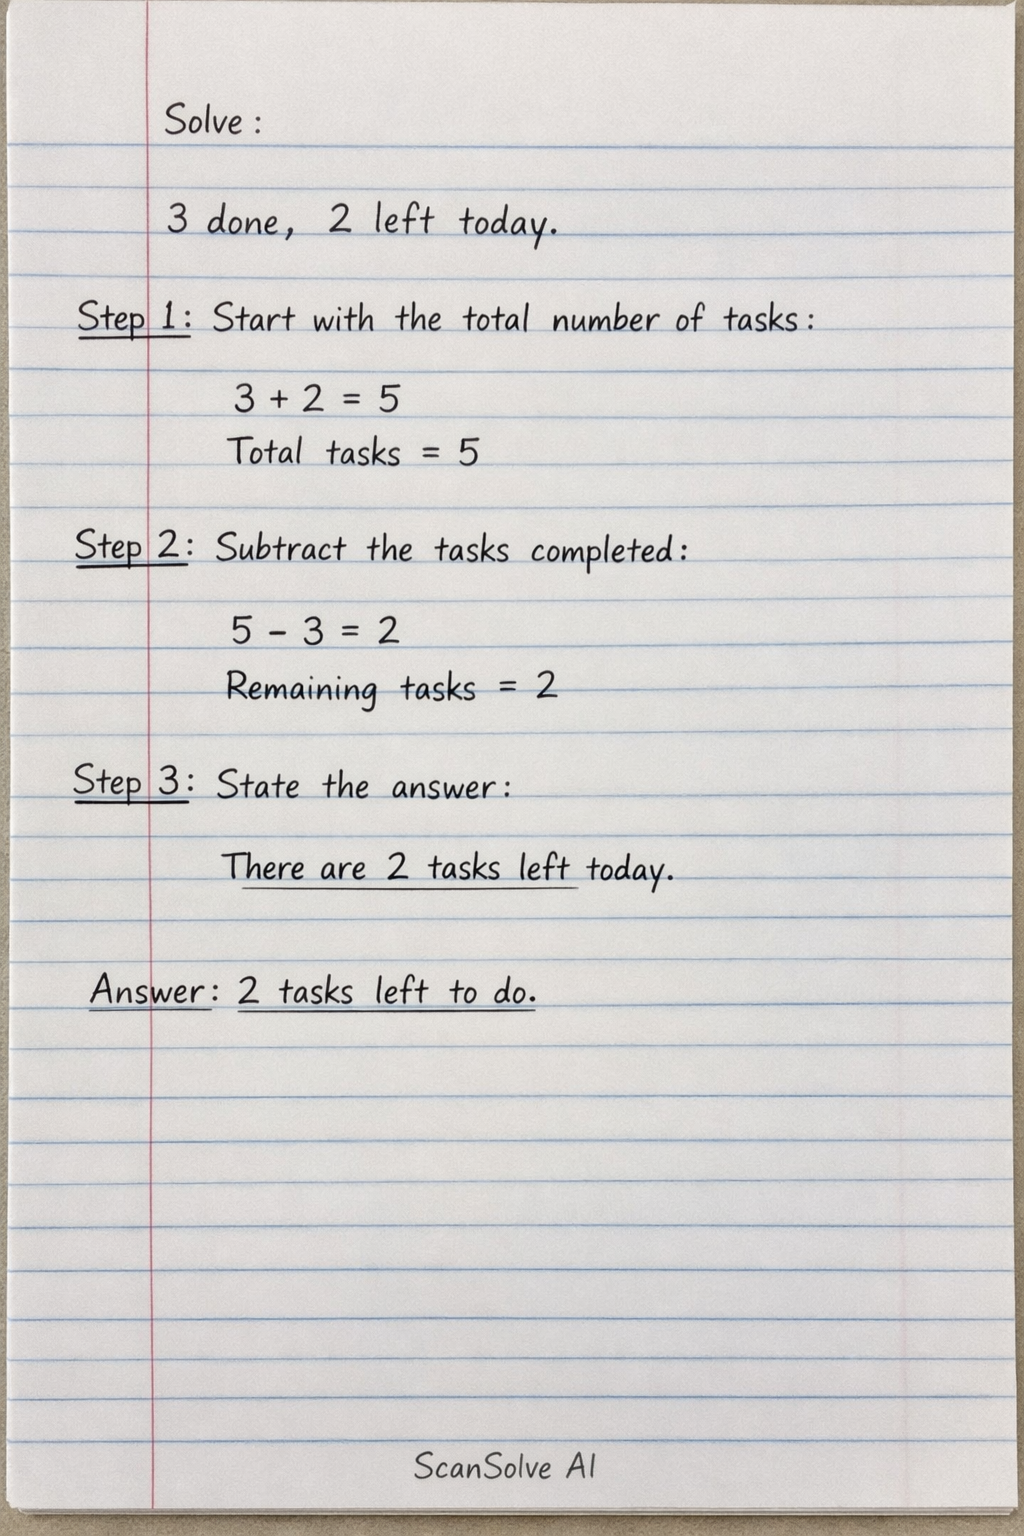 Solve :
3 done, 2 left today.
Step 1: Start with the total number of tasks:
3 + 2 = 5
Total tasks = 5
Step 2: Subtract the tasks completed:
5 - 3 = 2
Remaining tasks = 2
Step 3: State the answer:
There are 2 tasks left today.
Answer: 2 tasks left to do.
ScanSolve AI